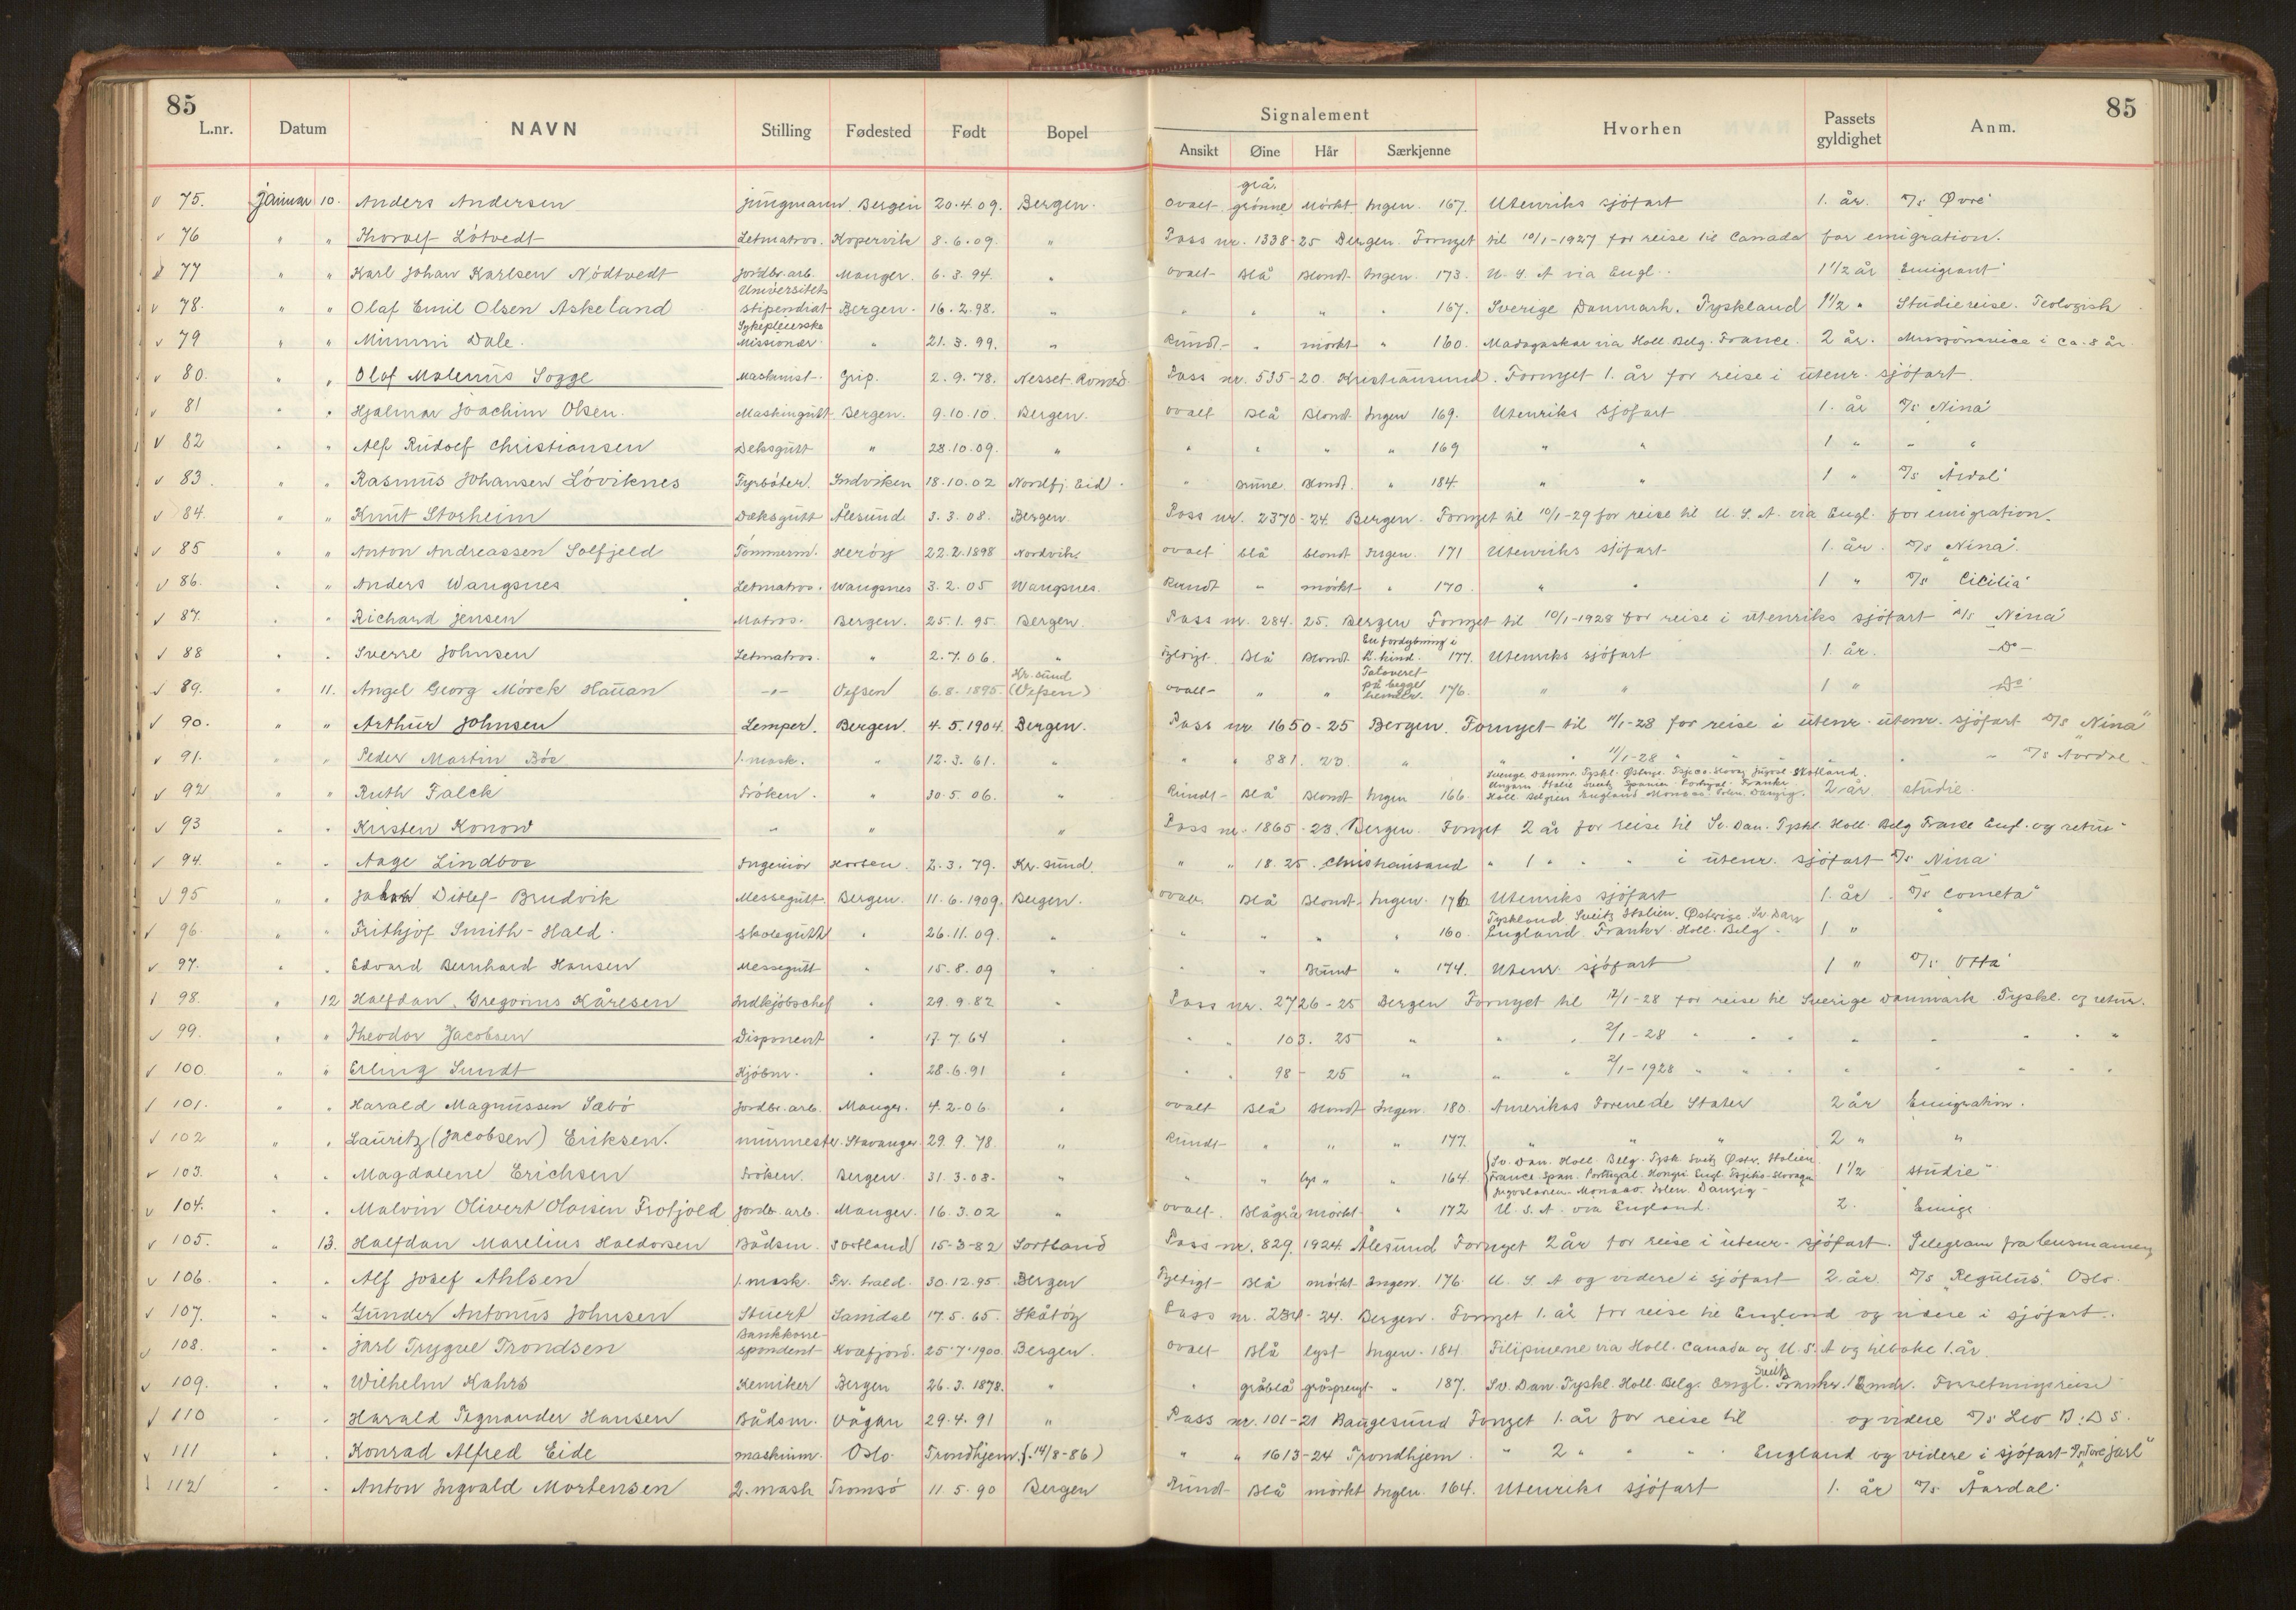 85
85
L.nr. Datum NAVN Stilling Fødested Født Bopel Signalement Hvorhen Passets gyldighet Anm.
Ansikt Øine Hår Særkjenne
grå.
75. Januar 10. Anders Andersen jungmann. Bergen 20.4.09. Bergen. ovalt grønne Mörkt Ingen. 167. Utenriks sjöfart 1. år. D/s Øvre"
76 " " Thoralf Lötvedt Letmatros. Kopervik 8.6.09. " Pass nr. 1338-25 Bergen. Fornyet til 10/1-1927 for reise til Canada for emigration.
77 " " Karl Johan Karlsen Nödtvedt Jordbr. arb. Manger. 6.3.94. " ovalt Blå Blondt Ingen. 173. U.S.A via Engl. 1 1/2 år Emigrant
78. " " Olaf Emil Olsen Askeland Universitets stipendiat Bergen. 16.2.98. " " " " " 167. Sverige Danmark. Tyskland 1 1/2 " Studiereise. Teologisk
79 " " Mimmi Dale. Sykepleierske Missionær. " 21.3.99. " Rundt " mörkt " 160. Madagaskar via Holl. Belg. France. 2 år. i ca. 8 år
80. " " Olaf Malenius Sogge Maskinist. Grip. 2.9.78. Nesset Romsd. Pass nr. 535-20 Kristiansund. Fornyet 1. år for reise i utenr. sjöfart.
81 " " Hjalmar Joachim Olsen. Maskingutt. Bergen. 9.10.10. Bergen. ovalt Blå Blondt Ingen 169. Utenriks sjöfart 1. år D/s Nina"
82 " " Alf Rudolf Christiansen Deksgutt " 28.10.09. " " " " " 169 " " 1 " " "
83. " " Rasmus Johansen Löviknes Fyrböter. Indviken 18.10.02 Nordfj. Eid. " Brune Blondt. " 184. " " 1 " D/s Årdal"
84. " " Knut Storheim Dæksgutt Ålesund 3.3.08. Bergen Pass nr. 2370-24. Bergen. Fornyet til 10/1-29 for reise til U.S.A. via Engl. for emigration.
85 " " Anton Andreassen Solfjeld Tömmerm. Heröy 22.2.1898 Nordvik. ovalt blå blondt Ingen. 171 Utenriks sjöfart 1. år. D/s Nina".
86. " " Anders Wangsnes Letmatros. Wangsnes 3.2.05 Wangsnes. Rundt " mörkt " 170. " " 1 " D/s Cicilia"
87. " " Richard Jensen Matros. Bergen. 25.1.95. Bergen. Pass nr. 284. 25. Bergen Fornyet til 10/1-1928 for reise i utenriks sjöfart D/s Nina"
88 " " Sverre Johnsen Letmatros. " 2.7.06. " Fyldigt. Blå Blondt En fordybning i h. kind. 177. Utenriks sjöfart 1. år. -Do-
89. " 11. Angel Georg Mörck Hauan -"- Vefsen 6.8.1895. Kr.sund (Vefsen) ovalt " " Tatoveret på begge hender. 176. " " 1 " Do
90. " " Arthur Johnsen Lemper. Bergen. 4.5.1904. Bergen. Pass nr 1650-25 Bergen. Fornyet til 11/1-28 for reise i utenr. utenr. sjöfart D/s Nina"
91. " " Peder Martin Böe 1. mask. " 12.3.61. " " " 881. 23. " " " 11/1-28 " " " " D/s Nordal
92 " " Ruth Falck Fröken. " 30.5.06. " Rundt Blå Blondt Ingen 166. Sverige Danm. Tyskl. Østrige. Tsjeco. Slovag Jugosl. Skotland. Ungarn Italie Sveitz Spanien Portugal Frankr. Holl. Belgien England Monaco Polen. Danzig. 2 år. studie.
93 " " Kristen Konow " " " Pass nr. 1865-23. Bergen. Fornyet 2 år for reise til Sv. Dan. Tyskl. Holl. Belg France Engl. og retur
94. " " Aage Lindboe Ingeniör Horten. 2.3.79. Kr.sund. " " 18. 25. Christiansand " 1 " " " i utenr. sjöfart D/s Nina"
95 " " Ditlef Brudvik Messegutt. Bergen. 11.6.1909. Bergen. ovalt. Blå Blondt. Ingen. 176 Utenriks sjöfart 1. år. D/s Cometa"
96. " " Frithjof Smith-Hald. skolegutt " 26.11.09. " " " " " 160. Tyskland Sveitz Italien. Østrige. Sv Dan England Frankr. Holl. Belg. 1 "
97. " " Edvard Bernhard Hansen Messegutt " 15.8.09 " " " Brunt " 174. Utenr. sjöfart 1 " D/s Otta"
98. " 12 Halfdan Gregorius Kåresen Indkjöbschef " 29.9.82 " Pass nr. 2726-25 Bergen Fornyet til 12/1-28 for reise til Sverige Danmark Tyskl. og retur.
99. " " Theodor Jacobsen Disponent " 17.7.64 " " " 103. 25 " " " 12/1-28 " " " " " " "
100 " " Erling Sundt Kjöbm. " 28.6.91 " " " 98-25 " " " 12/1-1928 " " " " " " "
101. " " Harald Magnussen Sæbö Jordbr. arb. Manger. 4.2.06. " ovalt Blå Blondt Ingen. 180. Amerikas Forenede Stater 2 år Emigration.
102 " " Lauritz (Jacobsen) Eriksen. murmester. Stavanger. 29.9.78. " Rundt " " " 177. " " " 2 " "
103. " " Magdalene Erichsen Fröken. Bergen. 31.3.08. " " " lys " " 164. Sv. Dan. Holl. Belg. Tysk. Sveitz Østr. Italien France. Span. Portugal. Engl. Tsjeko-Slovaga Jugoslavien. Monaco. Polen. Danzig 1 1/2 studie"
104. " " Malvin Olivert Oloisen Frofjeld Jordb. arb. Manger. 16.3.02 " ovalt. Blågrå mörkt " 172 U.S.A. via England. 2. Emigr
105. " 13. Halfdan Marelius Haldorsen Bådsm. Sortland 15-3-82 Sortland Pass nr. 829. 1924 Ålesund Fornyet 2 år for reise i utenr. sjöfart. Telegram fra
106. " " Alf Josef Ahlsen 1. mask. Fr. hald. 30.12.95. Bergen Fyldigt Blå mörkt Ingen. 176. U.S.A og videre i sjöfart 2. år. D/s Regulus". Oslo.
107. " " Gunder Antonius Johnsen Stuert Sanidal 17.5.65. Skåtöy Pass nr. 24. Bergen. Fornyet 1. år for reise til England og videre i sjöfart.
108. " " Jarl Trygve Trondsen Bankkorrespondent Kvæfjord. 25.7.1900. Bergen. ovalt Blå lyst Ingen. 184 Filipinene via Holl. Canada og U.S.A og tilbake 1. år.
109. " " Wilhelm Kahrs Kemiker Bergen 26.3.1878. " " gråblå gråsprengt " 187. Sv. Dan. Tyskl. Holl. Belg. Engl. Sveitz Frankr. Forretningsreise
110 " " Harald Tegnander Hansen Bådsm. Vågan 29.4.91 " Pass nr. 101-21 Haugesund Fornyet 1. år for reise til og videre D/s Leo B.D.S.
111 " " Konrad Alfred Eide maskinm. Oslo. Trondhjem. (14/8-86) " " 1613-24 Trondhjem. " 2 " " " England og videre i sjöfart D/s Tore Jarl"
112 " " Anton Ingvald Mortensen 2. mask Tromsö 11.5.90 Bergen Rundt Blå mörkt Ingen. 164. Utenriks sjöfart 1. år D/s Aardal"